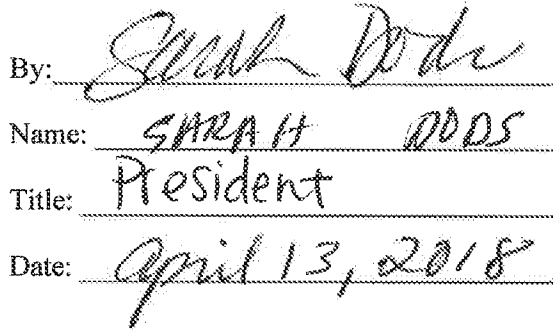 By: Sarah Dods
Name: SARAH DODS
Title: President
Date: April 13, 2018